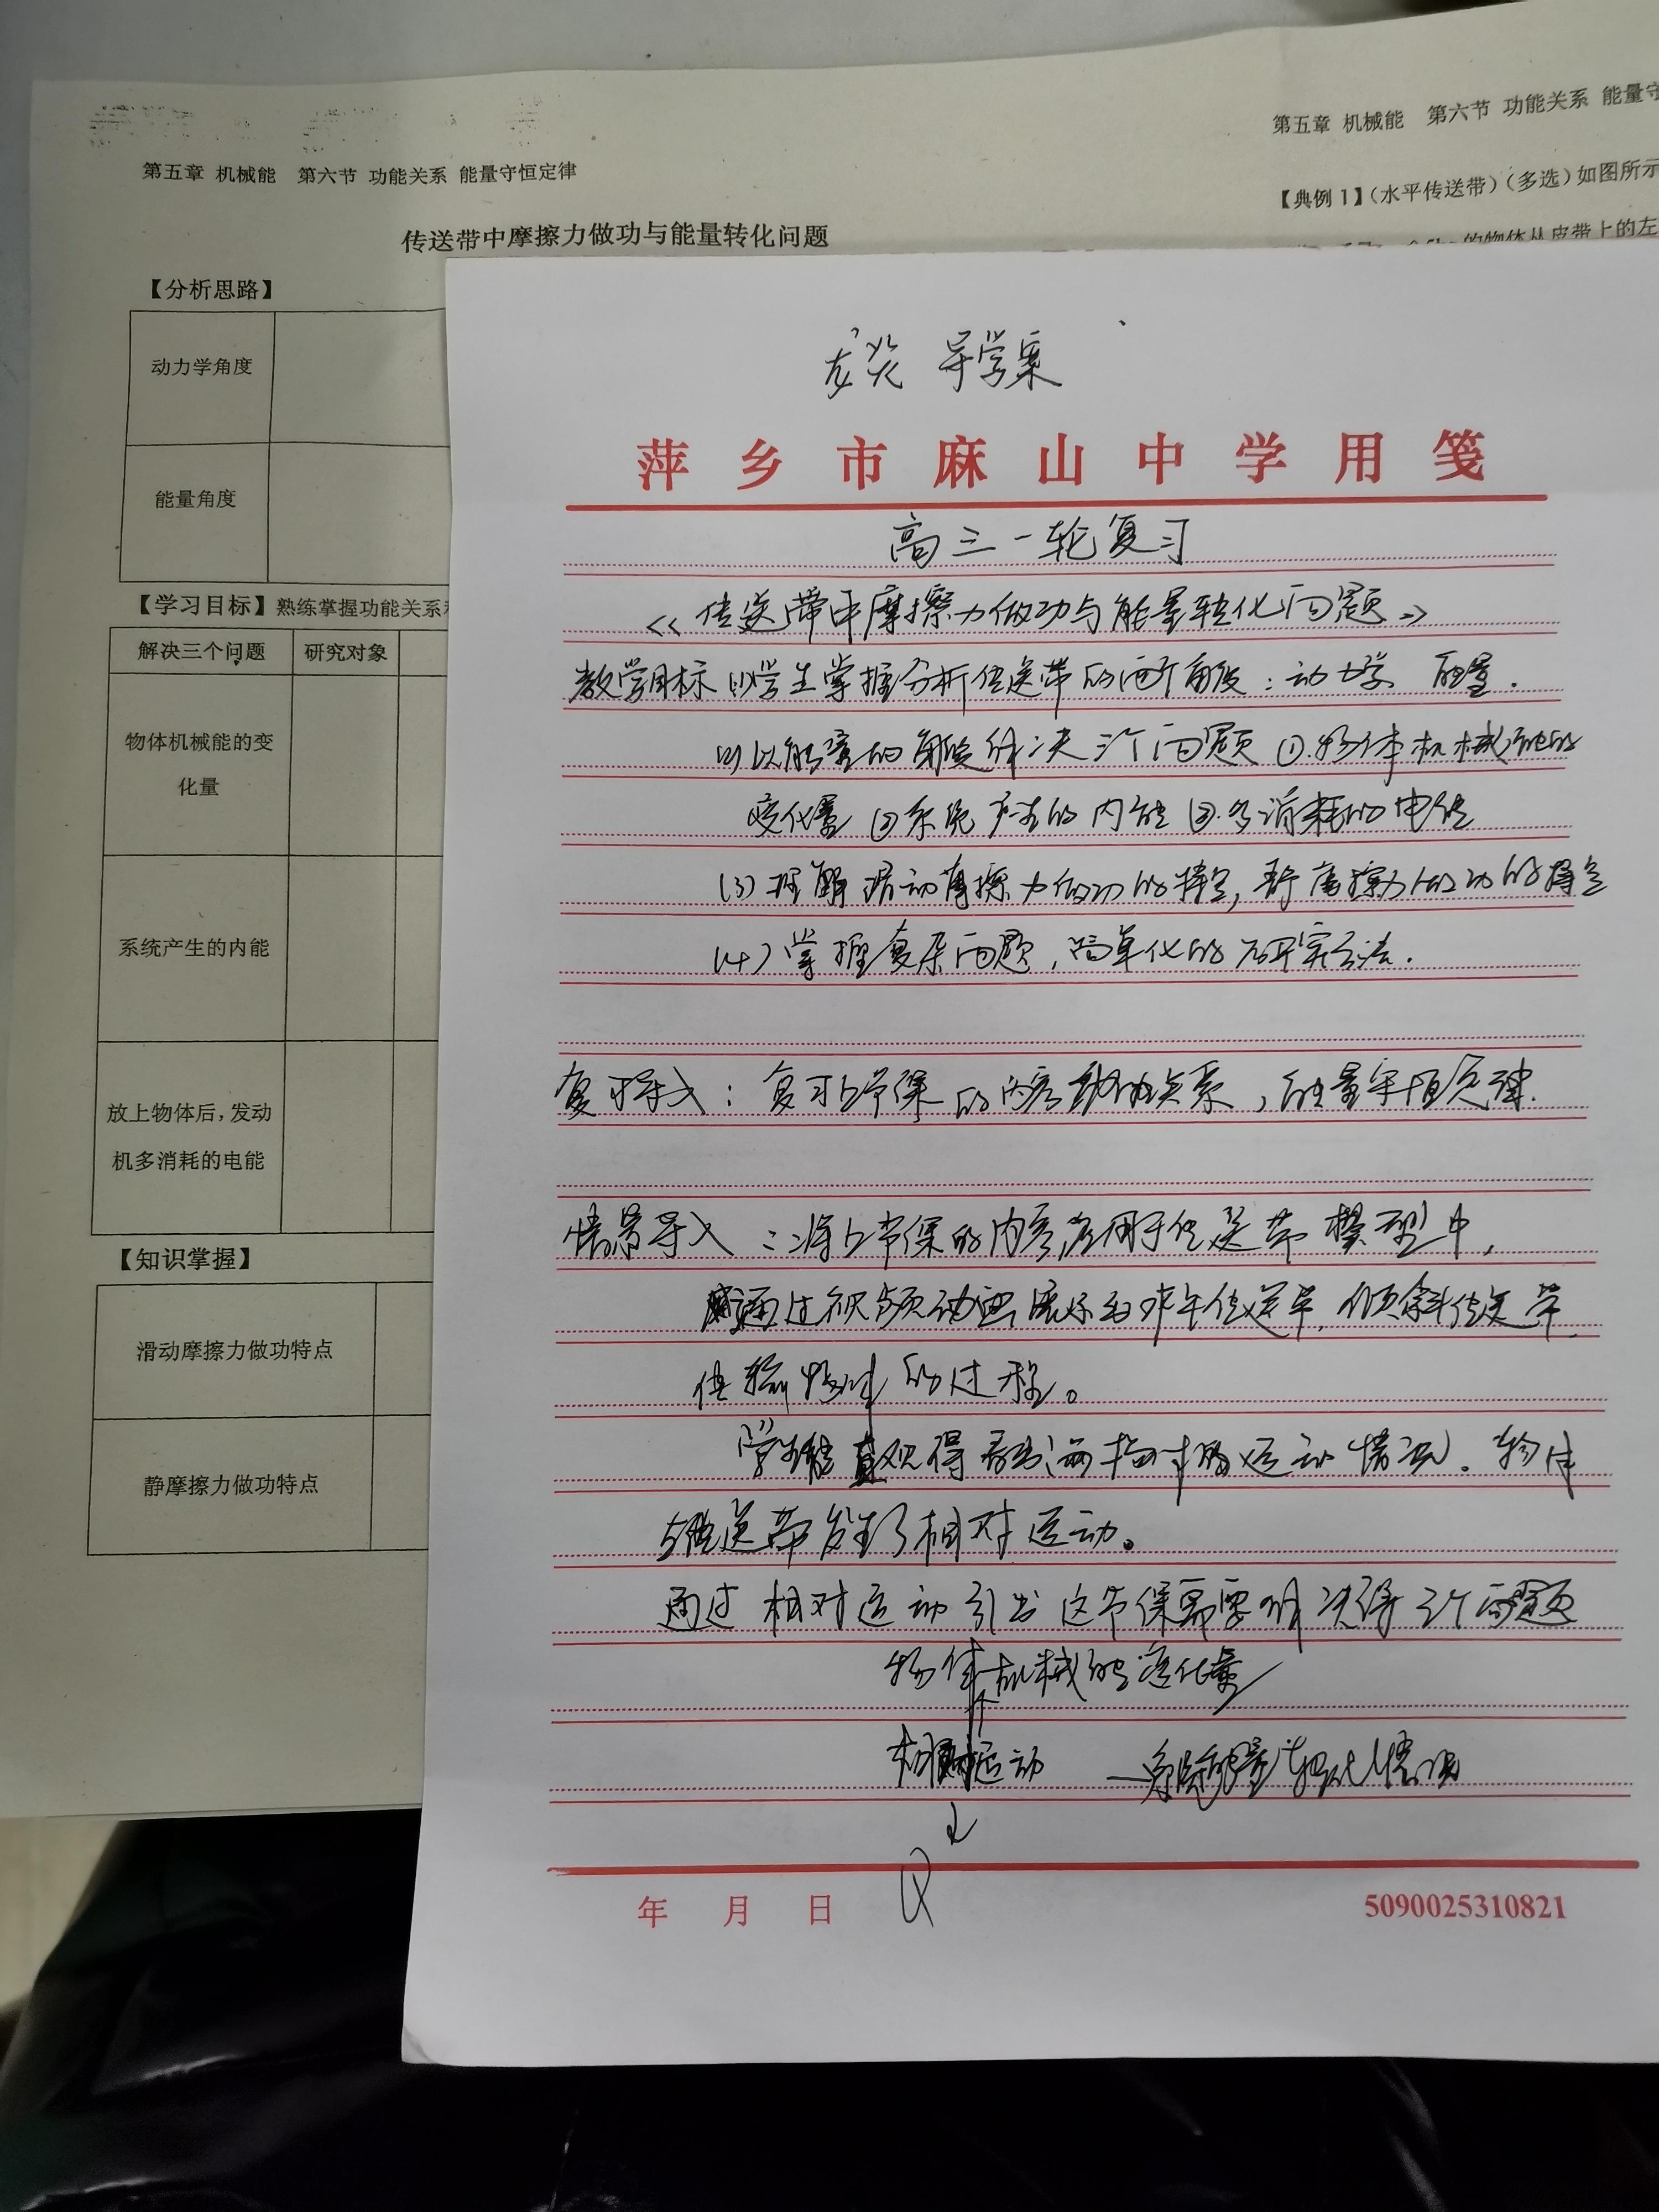 第五章 机械能 第六节 功能关系 能量守恒定律
传送带中摩擦力做功与能量转化问题
【分析思路】
动力学角度
能量角度
【学习目标】熟练掌握功能关系
解决三个问题 研究对象
物体机械能的变
化量
系统产生的内能
放上物体后，发动
机多消耗的电能
【知识掌握】
滑动摩擦力做功特点
静摩擦力做功特点
第五章 机械能 第六节 功能关系 能量守
【典例1】（水平传送带）（多选）如图所示
的物体从皮带上的左
导学案
萍乡市麻山中学用笺
高三一轮复习
《传送带中摩擦力做功与能量转化问题》
教学目标 (1)学生掌握分析传送带的两个角度：动力学 能量.
(2)以能量的角度解决三个问题 ①.物体机械能的
变化量 ②系统产生的内能 ③.多消耗的电能
(3)理解滑动摩擦力做功的特点, 静摩擦力做功的特点
(4)掌握复杂问题,简单化的研究方法.
复习导入：复习上节课的内容 功能关系，能量守恒定律.
情景导入：将上节课的内容应用于传送带模型中,
通过视频动画展示出水平传送带,倾斜传送带
传输物体的过程。
学生能直观得看出物体的运动情况.物体
与传送带发生了相对运动。
通过相对运动引出这节课需要解决得三个问题
物体机械能变化量
相对运动 —系统能量转化情况
Q
年 月 日
5090025310821